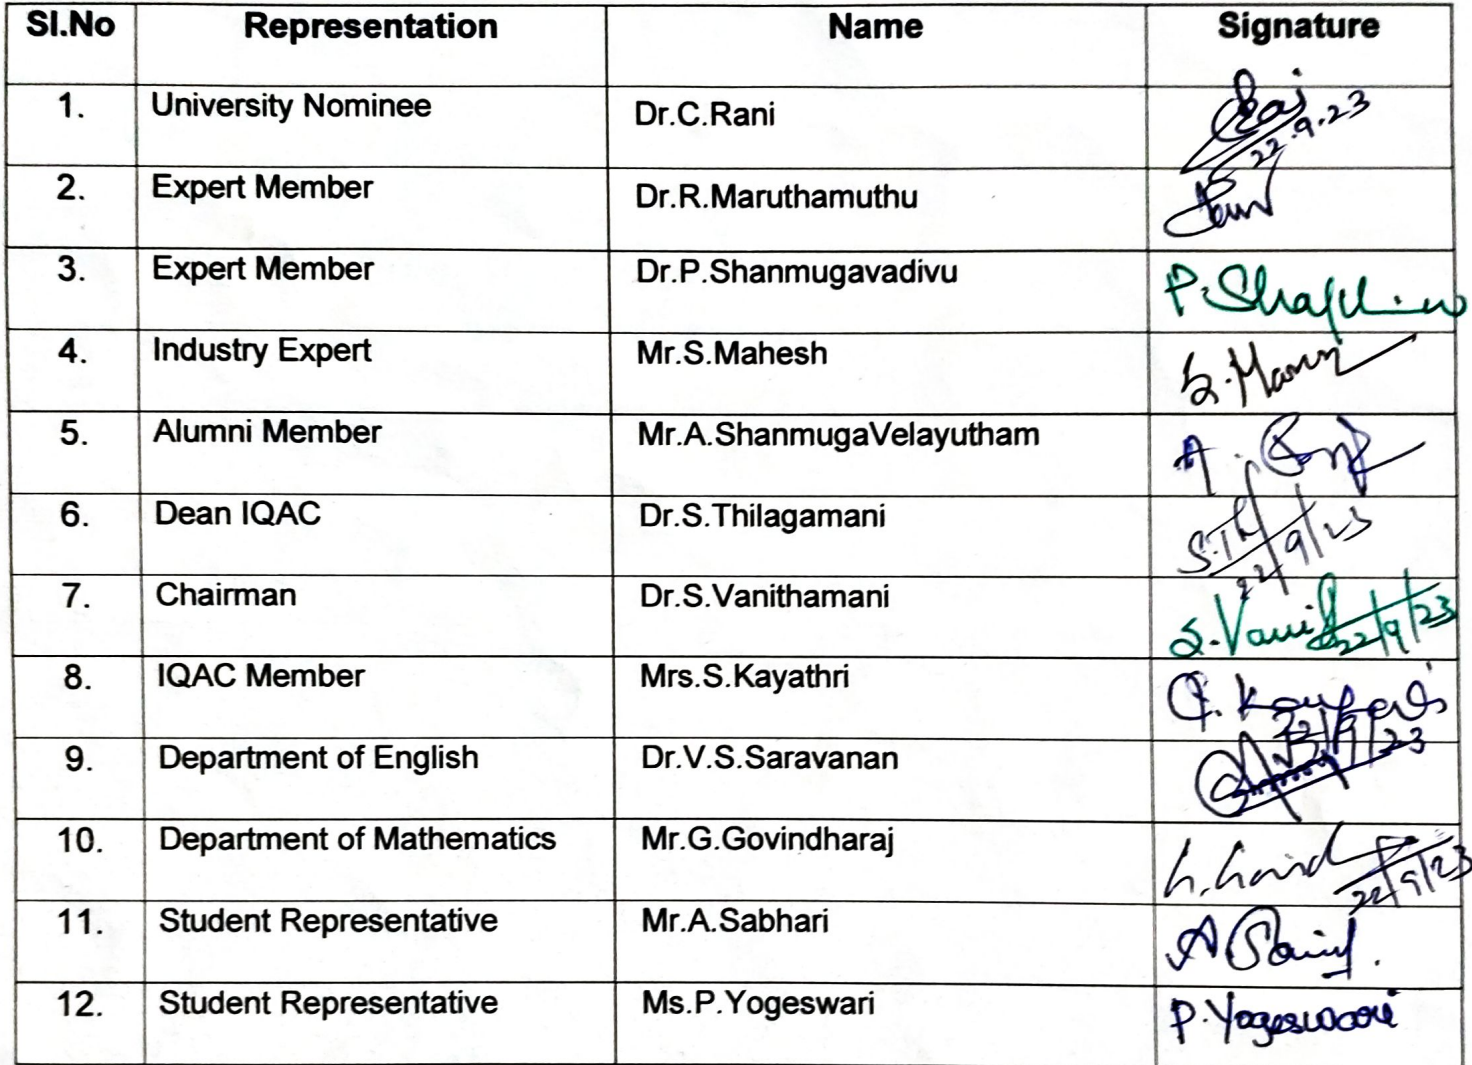 Sl.No Representation Name Signature
1. University Nominee Dr.C.Rani
22.9.23
2. Expert Member Dr.R.Maruthamuthu
3. Expert Member Dr.P.Shanmugavadivu P.
4. Industry Expert Mr.S.Mahesh S.
5. Alumni Member Mr.A.ShanmugaVelayutham A.
6. Dean IQAC Dr.S.Thilagamani
22/9/23
7. Chairman Dr.S.Vanithamani 22/9/23
8. IQAC Member Mrs.S.Kayathri
22/9/23
9. Department of English Dr.V.S.Saravanan
10. Department of Mathematics Mr.G.Govindharaj
22/9/23
11. Student Representative Mr.A.Sabhari A
12. Student Representative Ms.P.Yogeswari P.Yogeswari